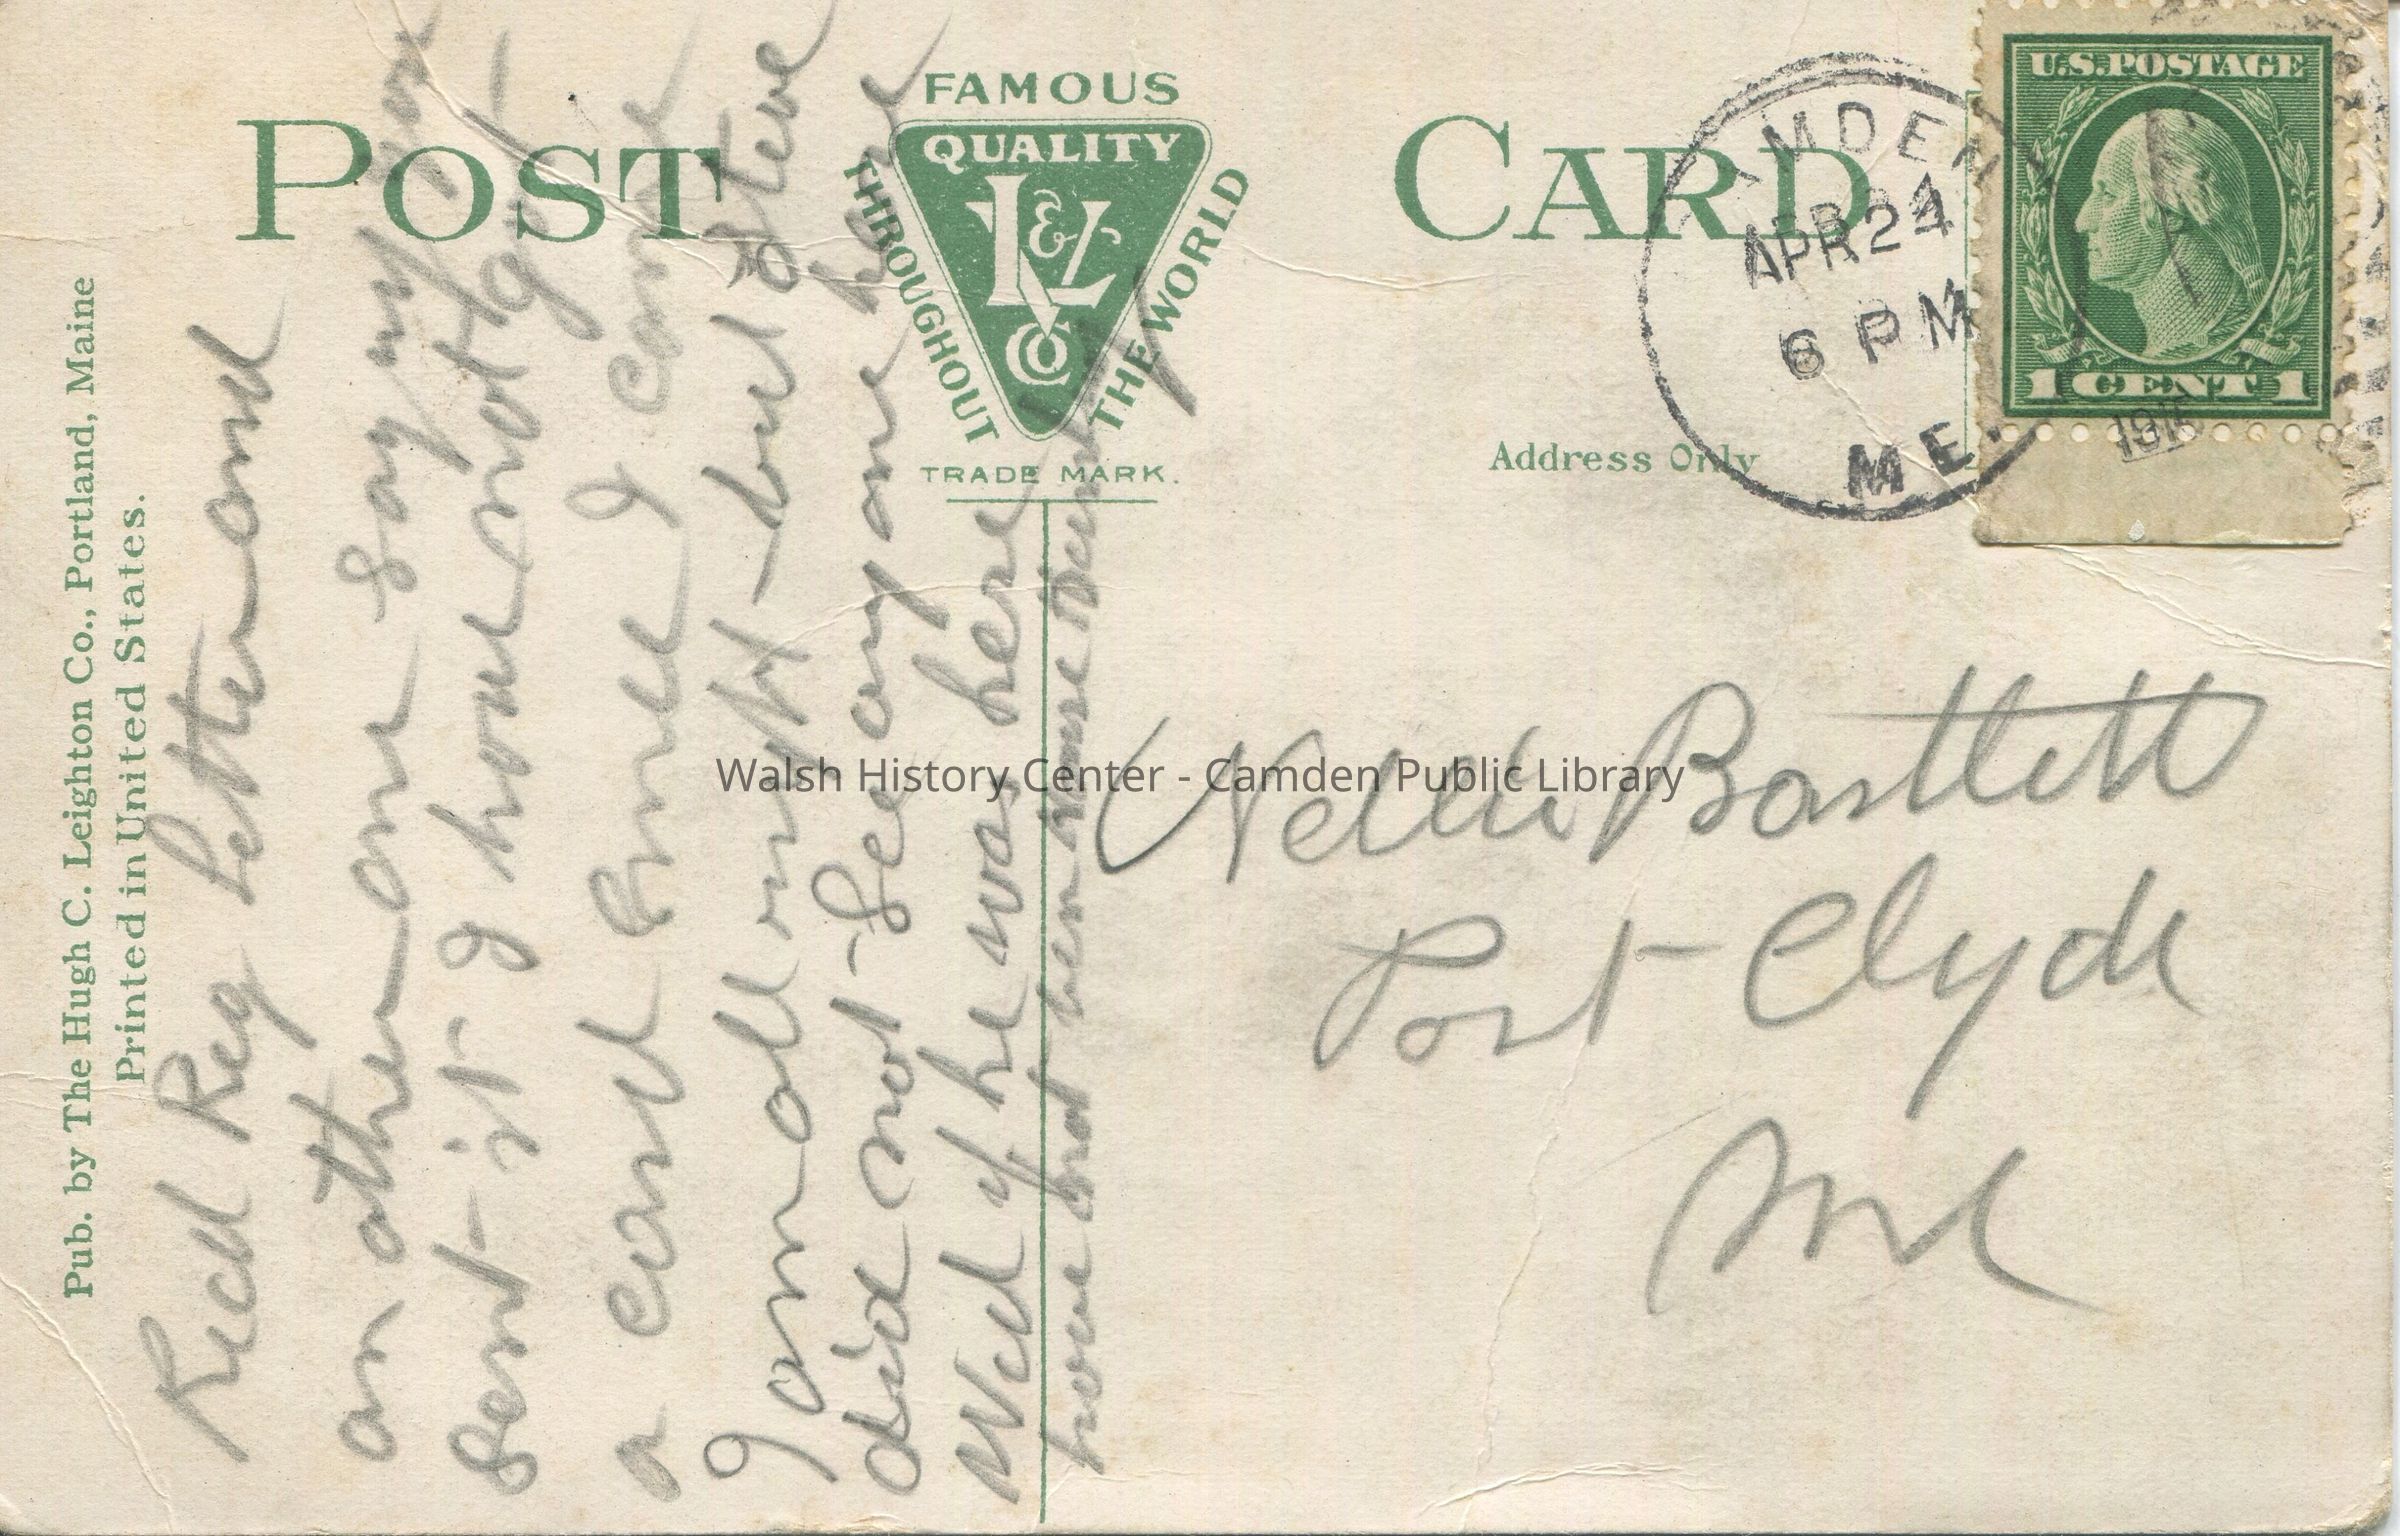 POST CARD
FAMOUS
QUALITY
THROUGHOUT THE WORLD
L & Co
TRADE MARK.
Address Only
CAMDEN
APR 24
6 PM
ME.
U.S. POSTAGE
1 CENT 1
Pub. by The Hugh C. Leighton Co., Portland, Maine
Printed in United States.
Recd Reg Letter and
an other one say my
sent it I have not got
a card since I came
I am all right but Steve
did not see any one here
Wed if he was here
have not been
Nellie Bartlett
Port Clyde
Me
Walsh History Center - Camden Public Library